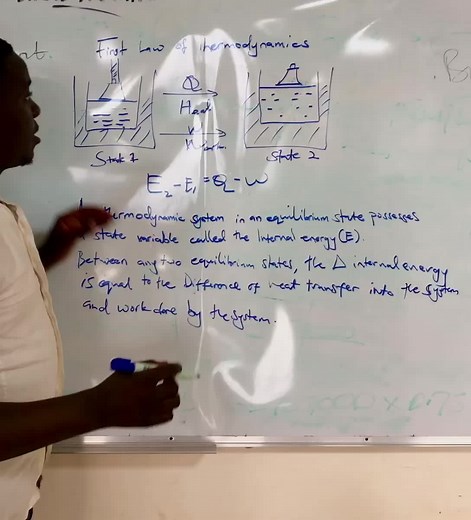 First Law of thermodynamics
Q
Heat
W
State 1
State 2
E₂-E₁=Q-W
thermodynamic system in an equilibrium state possesses
state variable called the Internal energy (E).
Between any two equilibrium states, the Δ internal energy
is equal to the Difference of heat transfer into the system
and work done by the system.